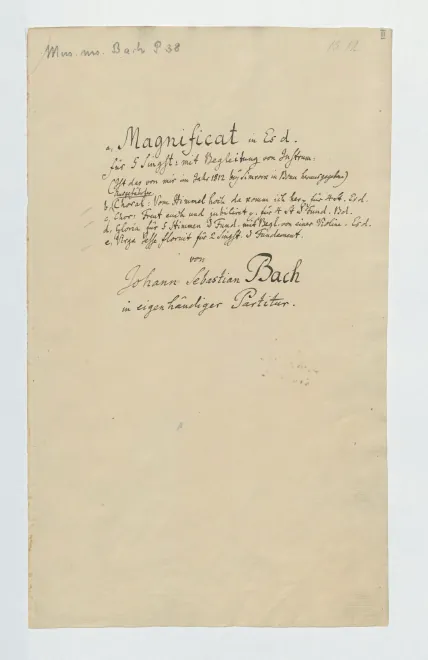 Mus. ms. Bach P 38
a, Magnificat in Es d.
für 5 Singst: mit Begleitung von Instrum:
(Ist das von mir im Jahr 1812 bey Simrock in Bonn herausgegeb.)
b, Choral: Vom Himmel hoch da komm ich her, für 4 st. Es d.
c, Chor: Freut euch und jubilirt, für 4 st
d, Gloria für 5 Stimmen Fund. mit Begl. von einer Violine. Es d.
e, Virga Jesse floruit für 2 Singst. Fundament.
von
Johann Sebastian Bach
in eigenhändiger Partitur.